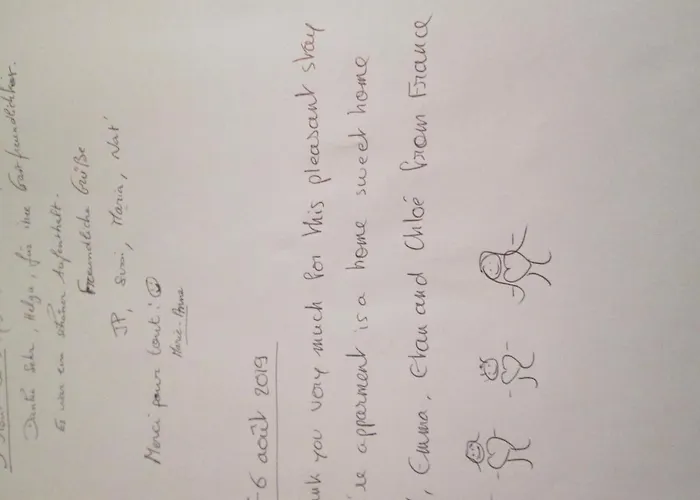 Danke sehr, Helga, für ihre Gastfreundlichkeit.
Es war ein schöner Aufenthalt.
Freundliche Grüße
JP, Susi, Maria, Nat'
Merci pour tout!
Marie-Anne
-6 août 2019
nk you very much for this pleasant stay
re apparment is a home sweet home
, Emma, Etan and Chloé from France